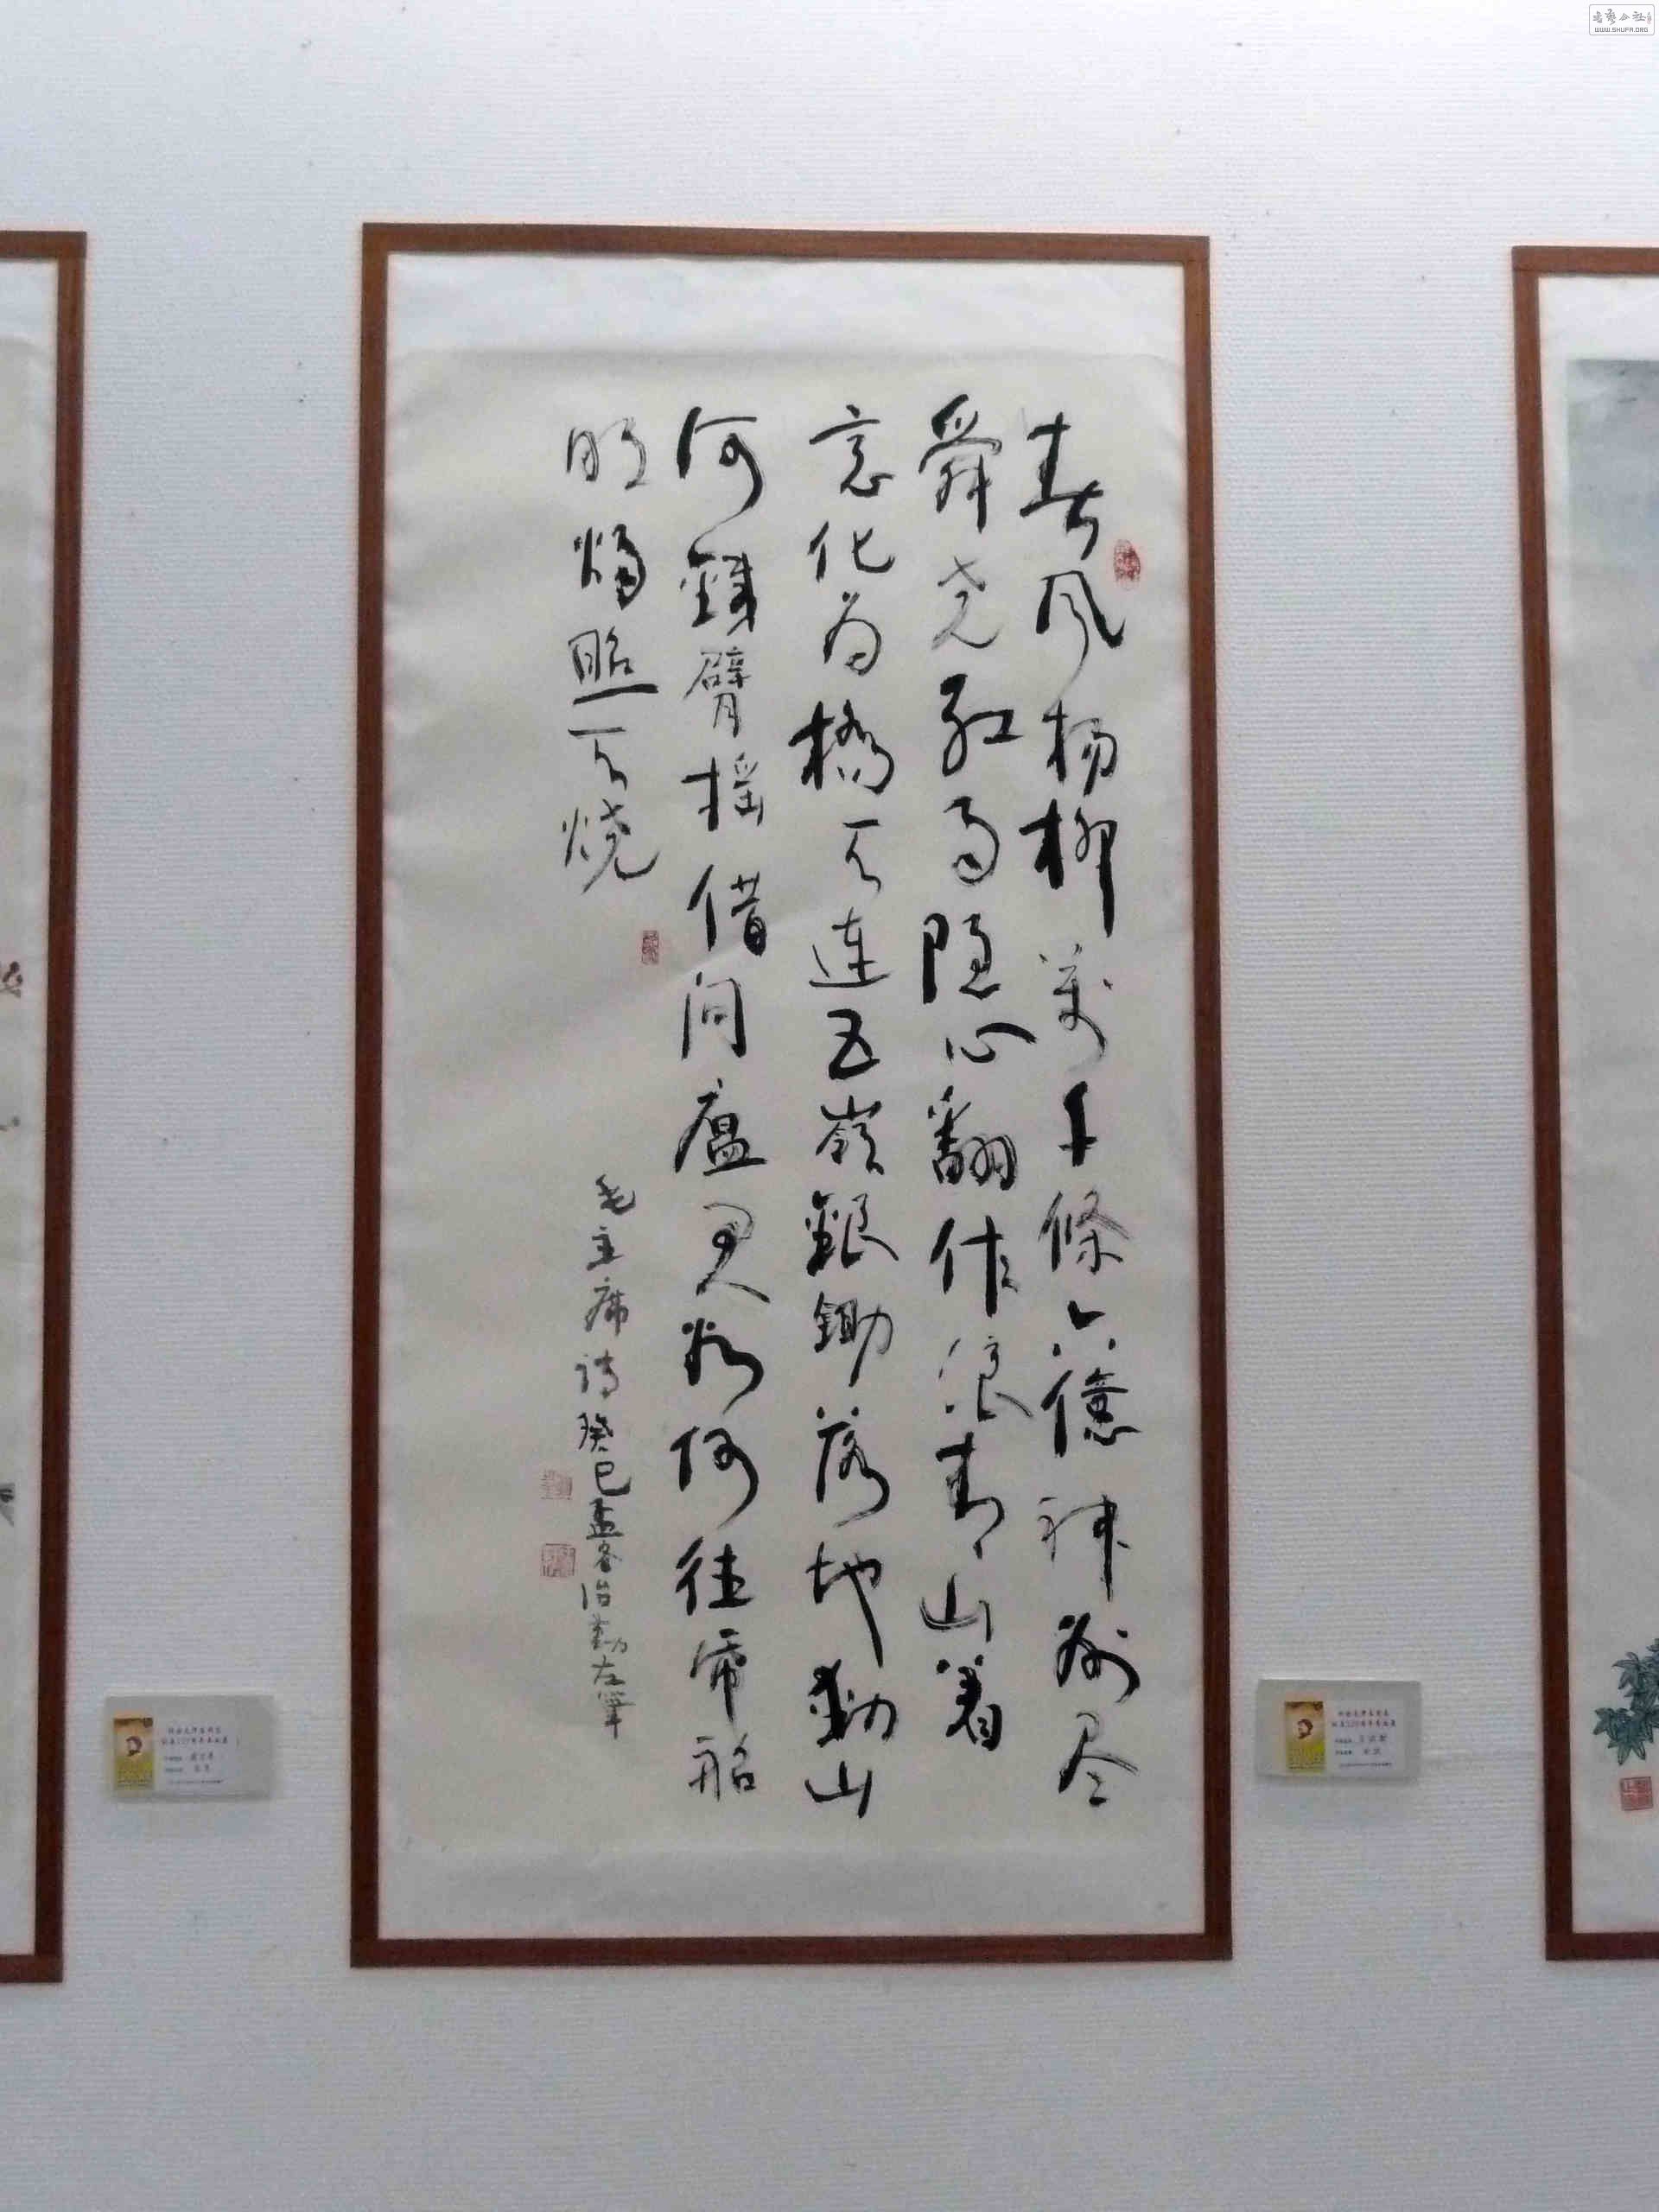 春风杨柳萬千條六億神州尽
舜尧红雨随心翻作浪青山着
意化为橋天连五嶺銀鋤落地動山
河鐵臂摇借问瘟君欲何往帋船
明燭照天烧
毛主席诗癸巳孟冬治勤左筆
WWW.SHUFA.ORG